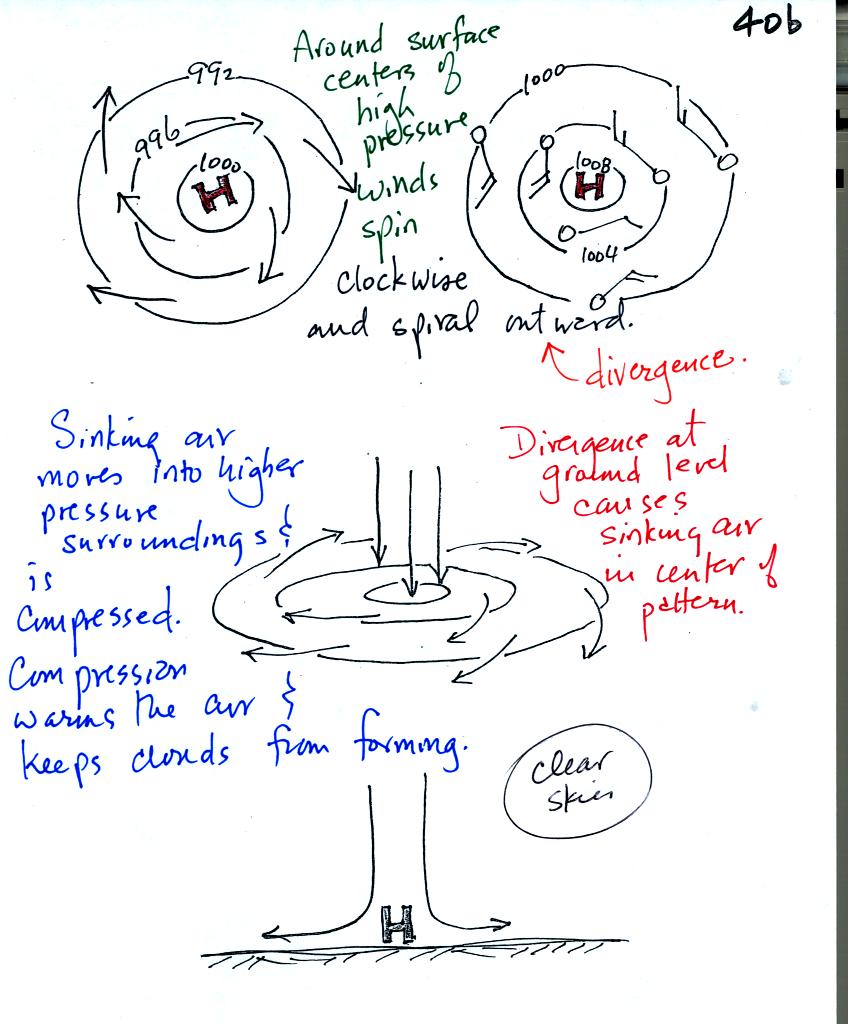 40b
Around surface
centers of
high
pressure
winds
spin
clockwise
and spiral outward.
divergence.
992
996
1000
H
1000
1008
H
1004
Sinking air
moves into higher
pressure
surroundings &
is
compressed.
Compression
warms the air &
keeps clouds from forming.
Divergence at
ground level
causes
sinking air
in center of
pattern.
clear
skies
H